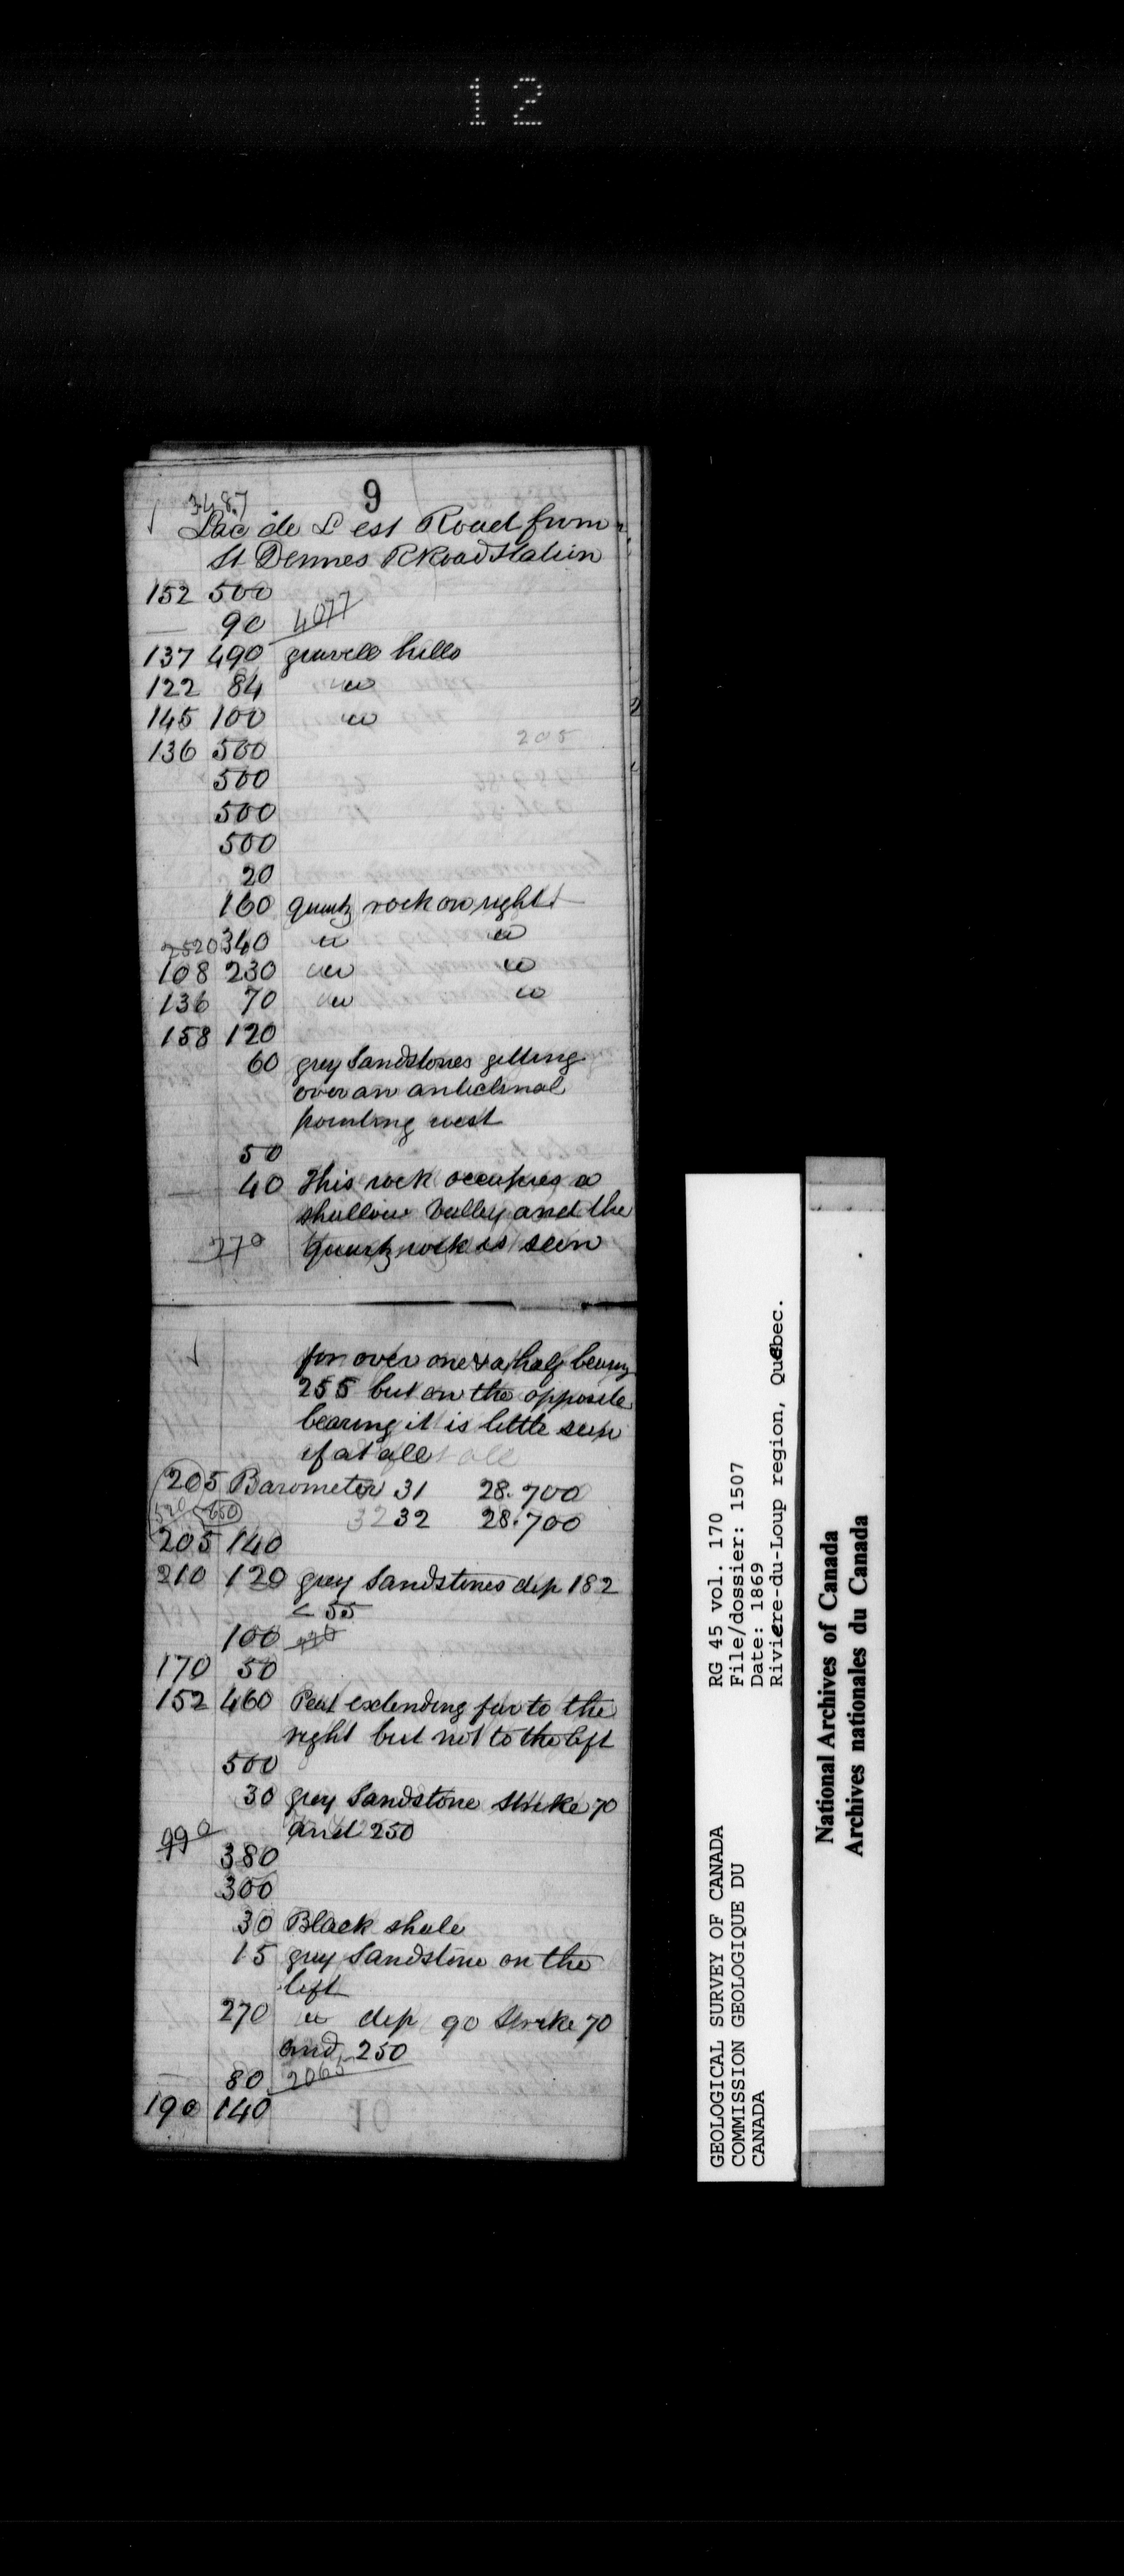 12
9
3487
Lac de L est Road from
St Dennes RRoad Station
152 500
90 4077
137 490 gravell hills
122 84 "
145 100 "
136 500
205
500
500
500
20
160 quartz rock on right
2520 340 " "
108 230 " "
136 70 " "
158 120
60 grey Sandstones getting
over an anticlinal
pointing west
50
40 This rock occupies a
shallow Valley and the
270 quartz rock is seen
for over one & a half bearing
255 but on the opposite
bearing it is little seen
if at all
205 Barometer 31 28.700
650 32 32 28.700
205 140
210 120 grey Sandstones dip 182
< 55
100
170 50
152 460 Peat extending far to the
right but not to the left
500
30 grey Sandstone strike 70
and 250
990
380
300
30 Black shale
15 grey Sandstone on the
left
270 " dip 90 Strike 70
and 250
80 2065
190 140
10
GEOLOGICAL SURVEY OF CANADA
COMMISSION GEOLOGIQUE DU
CANADA
RG 45 vol. 170
File/dossier: 1507
Date: 1869
Riviere-du-Loup region, Quebec.
National Archives of Canada
Archives nationales du Canada